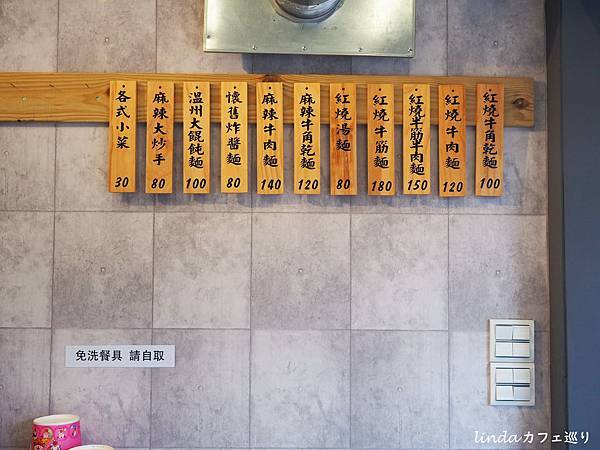 紅燒牛角乾麵 100
紅燒牛肉麵 120
紅燒半筋半肉麵 150
紅燒牛筋麵 180
紅燒湯麵 80
麻辣牛角乾麵 120
麻辣牛肉麵 140
懷舊炸醬麵 80
溫州大餛飩麵 100
麻辣大炒手 80
各式小菜 30
免洗餐具 請自取
lindaカフェ巡り